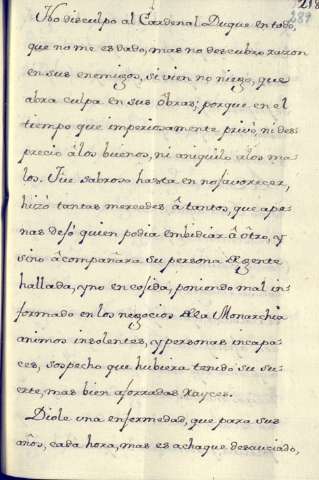 218
281
Yo disculpo al Cardenal Duque en todo,
que no me es dado, mas no descubro razon
en sus enemigos, si vien no niego, que
abra culpa en sus obras; porque en el
tiempo que imperiosamente privò, ni des-
preciò â los buenos, ni aniquilò â los ma-
los. Fue sabroso hasta en no favorecer,
hizò tantas mercedes â tantos, que ape-
nas dejò quien podia embidiar â ôtro, y
sino âcompañara su persona de gente
hallada, y no encojida, poniendo mal in-
formado en los negocios de la Monarchia
animos insolentes, y personas incapa-
ces, sospecho que hubiera tenido su su-
erte, mas bien aforradas rayces.
Diole una enfermedad, que para sus
años, cada hora, mas es achaque desauciado,